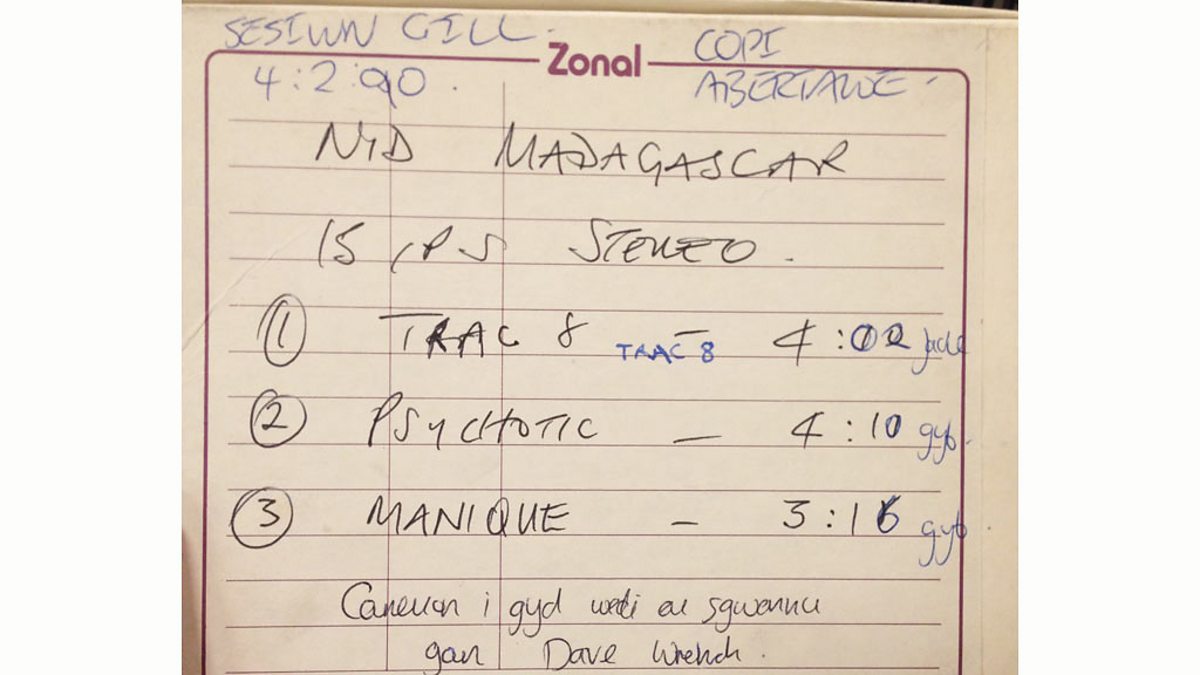 SESIWN GILL.
Zonal
COPI
4:2:90.
ABERTAWE-
NID MADAGASCAR
15 IPS STEREO.
1 TRAC 8 TRAC 8 - 4:02
2 PSYCHOTIC - 4:10 gyb.
3 MANIQUE - 3:16 gyb
Caneuon i gyd wedi eu sgwennu
gan Dave Wrench.